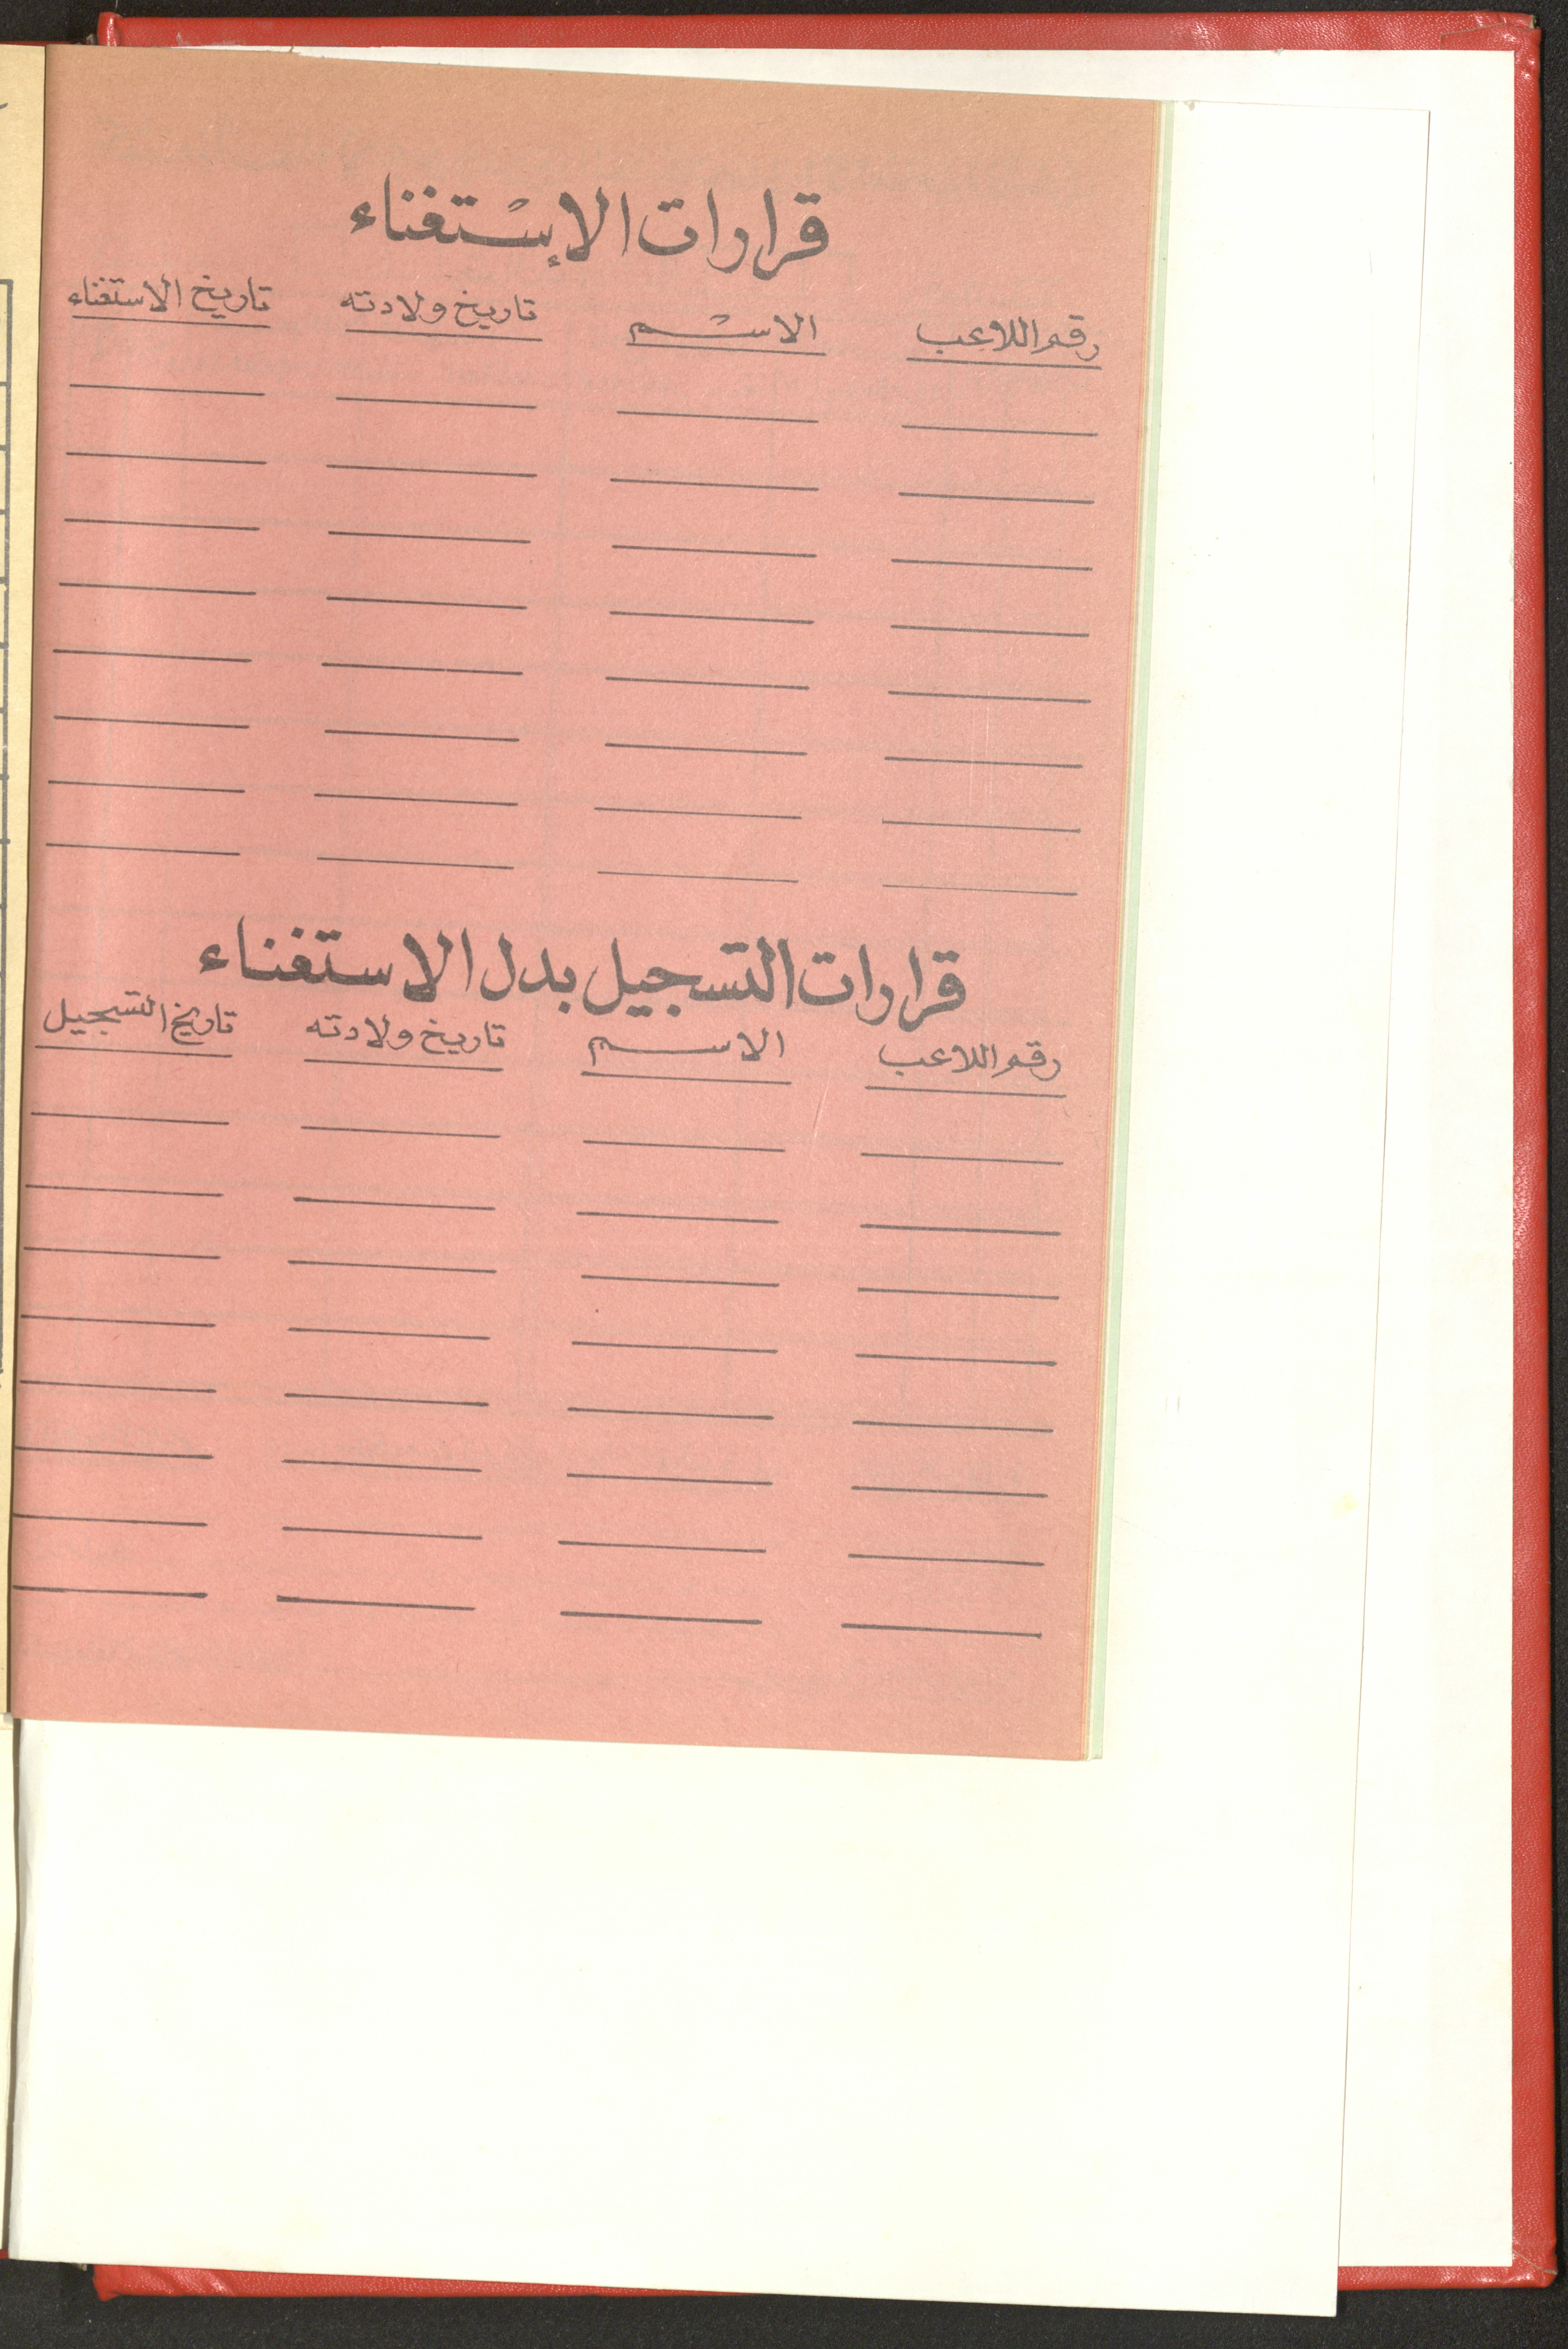 قرارات الإستغناء
رقم اللاعب الاسم تاريخ ولادته تاريخ الاستغناء
قرارات التسجيل بدل الاستغناء
رقم اللاعب الاسم تاريخ ولادته تاريخ التسجيل